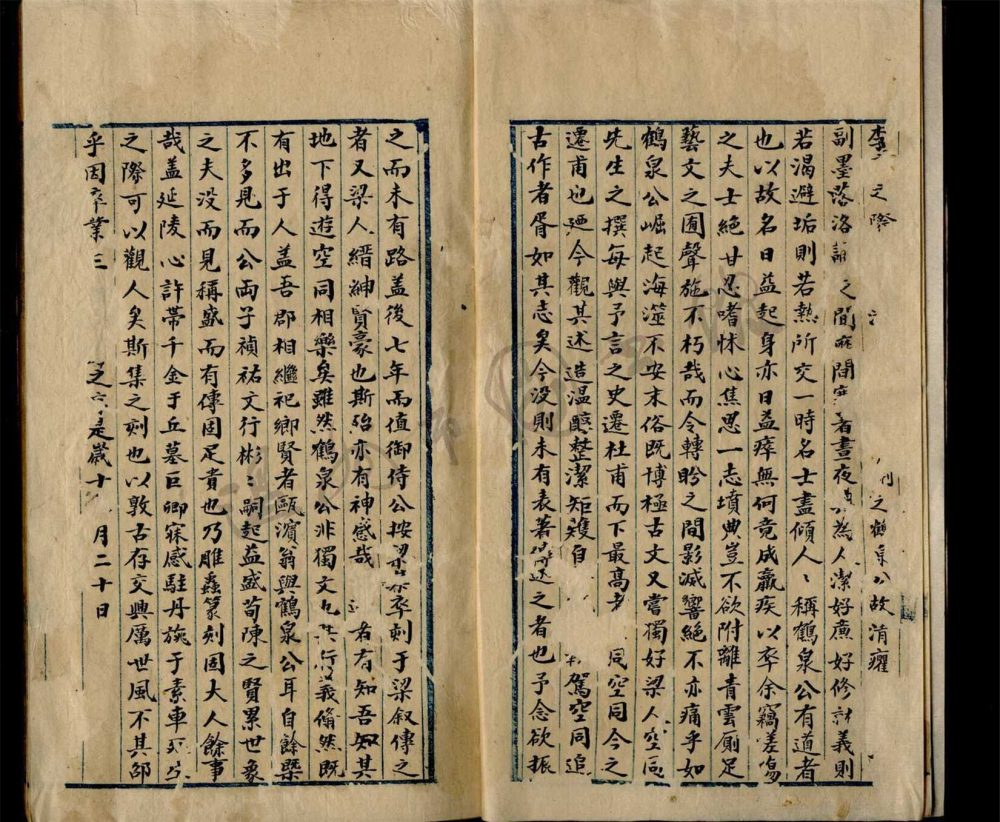 李 之際 刋之鶴泉公故清癯
副墨落洛誦之間 晝夜 為人潔好廉好修討義則
若渴避垢則若熱所交一時名士盡傾人〻稱鶴泉公有道者
也以故名日益起身亦日益瘁無何竟成羸疾以卒余竊差傷
之夫士絕甘忍嗜怵心焦思一志墳典豈不欲附離青雲厠足
藝文之囿聲施不朽哉而令轉盻之間影滅響絕不亦痛乎如
鶴泉公崛起海澨不安末俗既博極古文又嘗獨好梁人空同
先生之撰每與予言之史遷杜甫而下最高 同空同今之
遷甫也廼今觀其述造溫醇整潔矩矱自 駕空同追
古作者胥如其志矣今没則未有表著 述之者也予念欲振
之而未有路蓋後七年而值御侍公按梁 卒刺于梁叙傳之
者又梁人縉紳賢豪也斯殆亦有神感哉 者有知吾知其
地下得遊空同相樂矣雖然鶴泉公非獨文也其行義脩然既
有出于人蓋吾郡相繼祀鄉賢者甌濱翁與鶴泉公耳自餘槩
不多見而公両子禎祐文行彬〻嗣起益盛荀陳之賢累世象
之夫没而見稱盛而有傳固足貴也乃雕蟲篆刻固大人餘事
哉蓋延陵心許帶千金于丘墓巨卿寐感駐丹旐于素車死生
之際可以觀人矣斯集之刻也以敦古存交興厲世風不其郃
乎因卒業三 之六 是歲十 月二十日